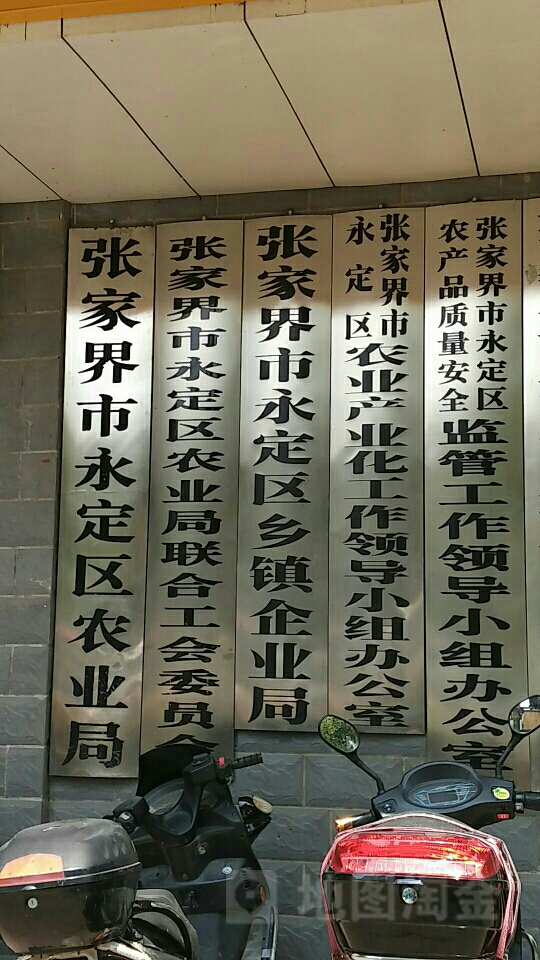 张家界市永定区农业局
张家界市永定区农业局联合工会委员会
张家界市永定区乡镇企业局
张家界市
永定区
农业产业化工作领导小组办公室
张家界市永定区
农产品质量安全
监管工作领导小组办公室
地图淘金